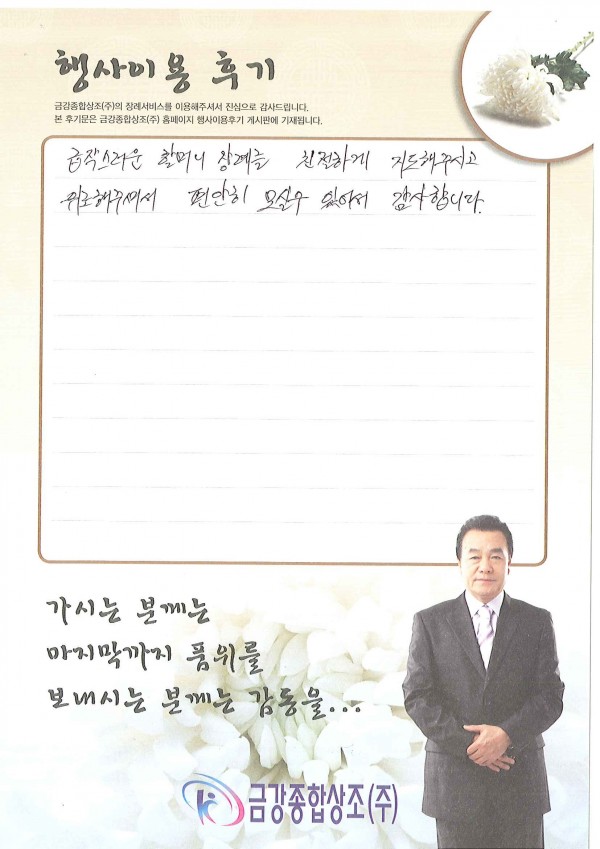 행사이용 후기
금강종합상조(주)의 장례서비스를 이용해주셔서 진심으로 감사드립니다.
본 후기문은 금강종합상조(주) 홈페이지 행사이용후기 게시판에 기재됩니다.
급작스러운 할머니 장례를 친절하게 지도해주시고
위로해주셔서 편안히 모실수 있어서 감사합니다.
가시는 분께는
마지막까지 품위를
보내시는 분께는 감동을...
금강종합상조(주)